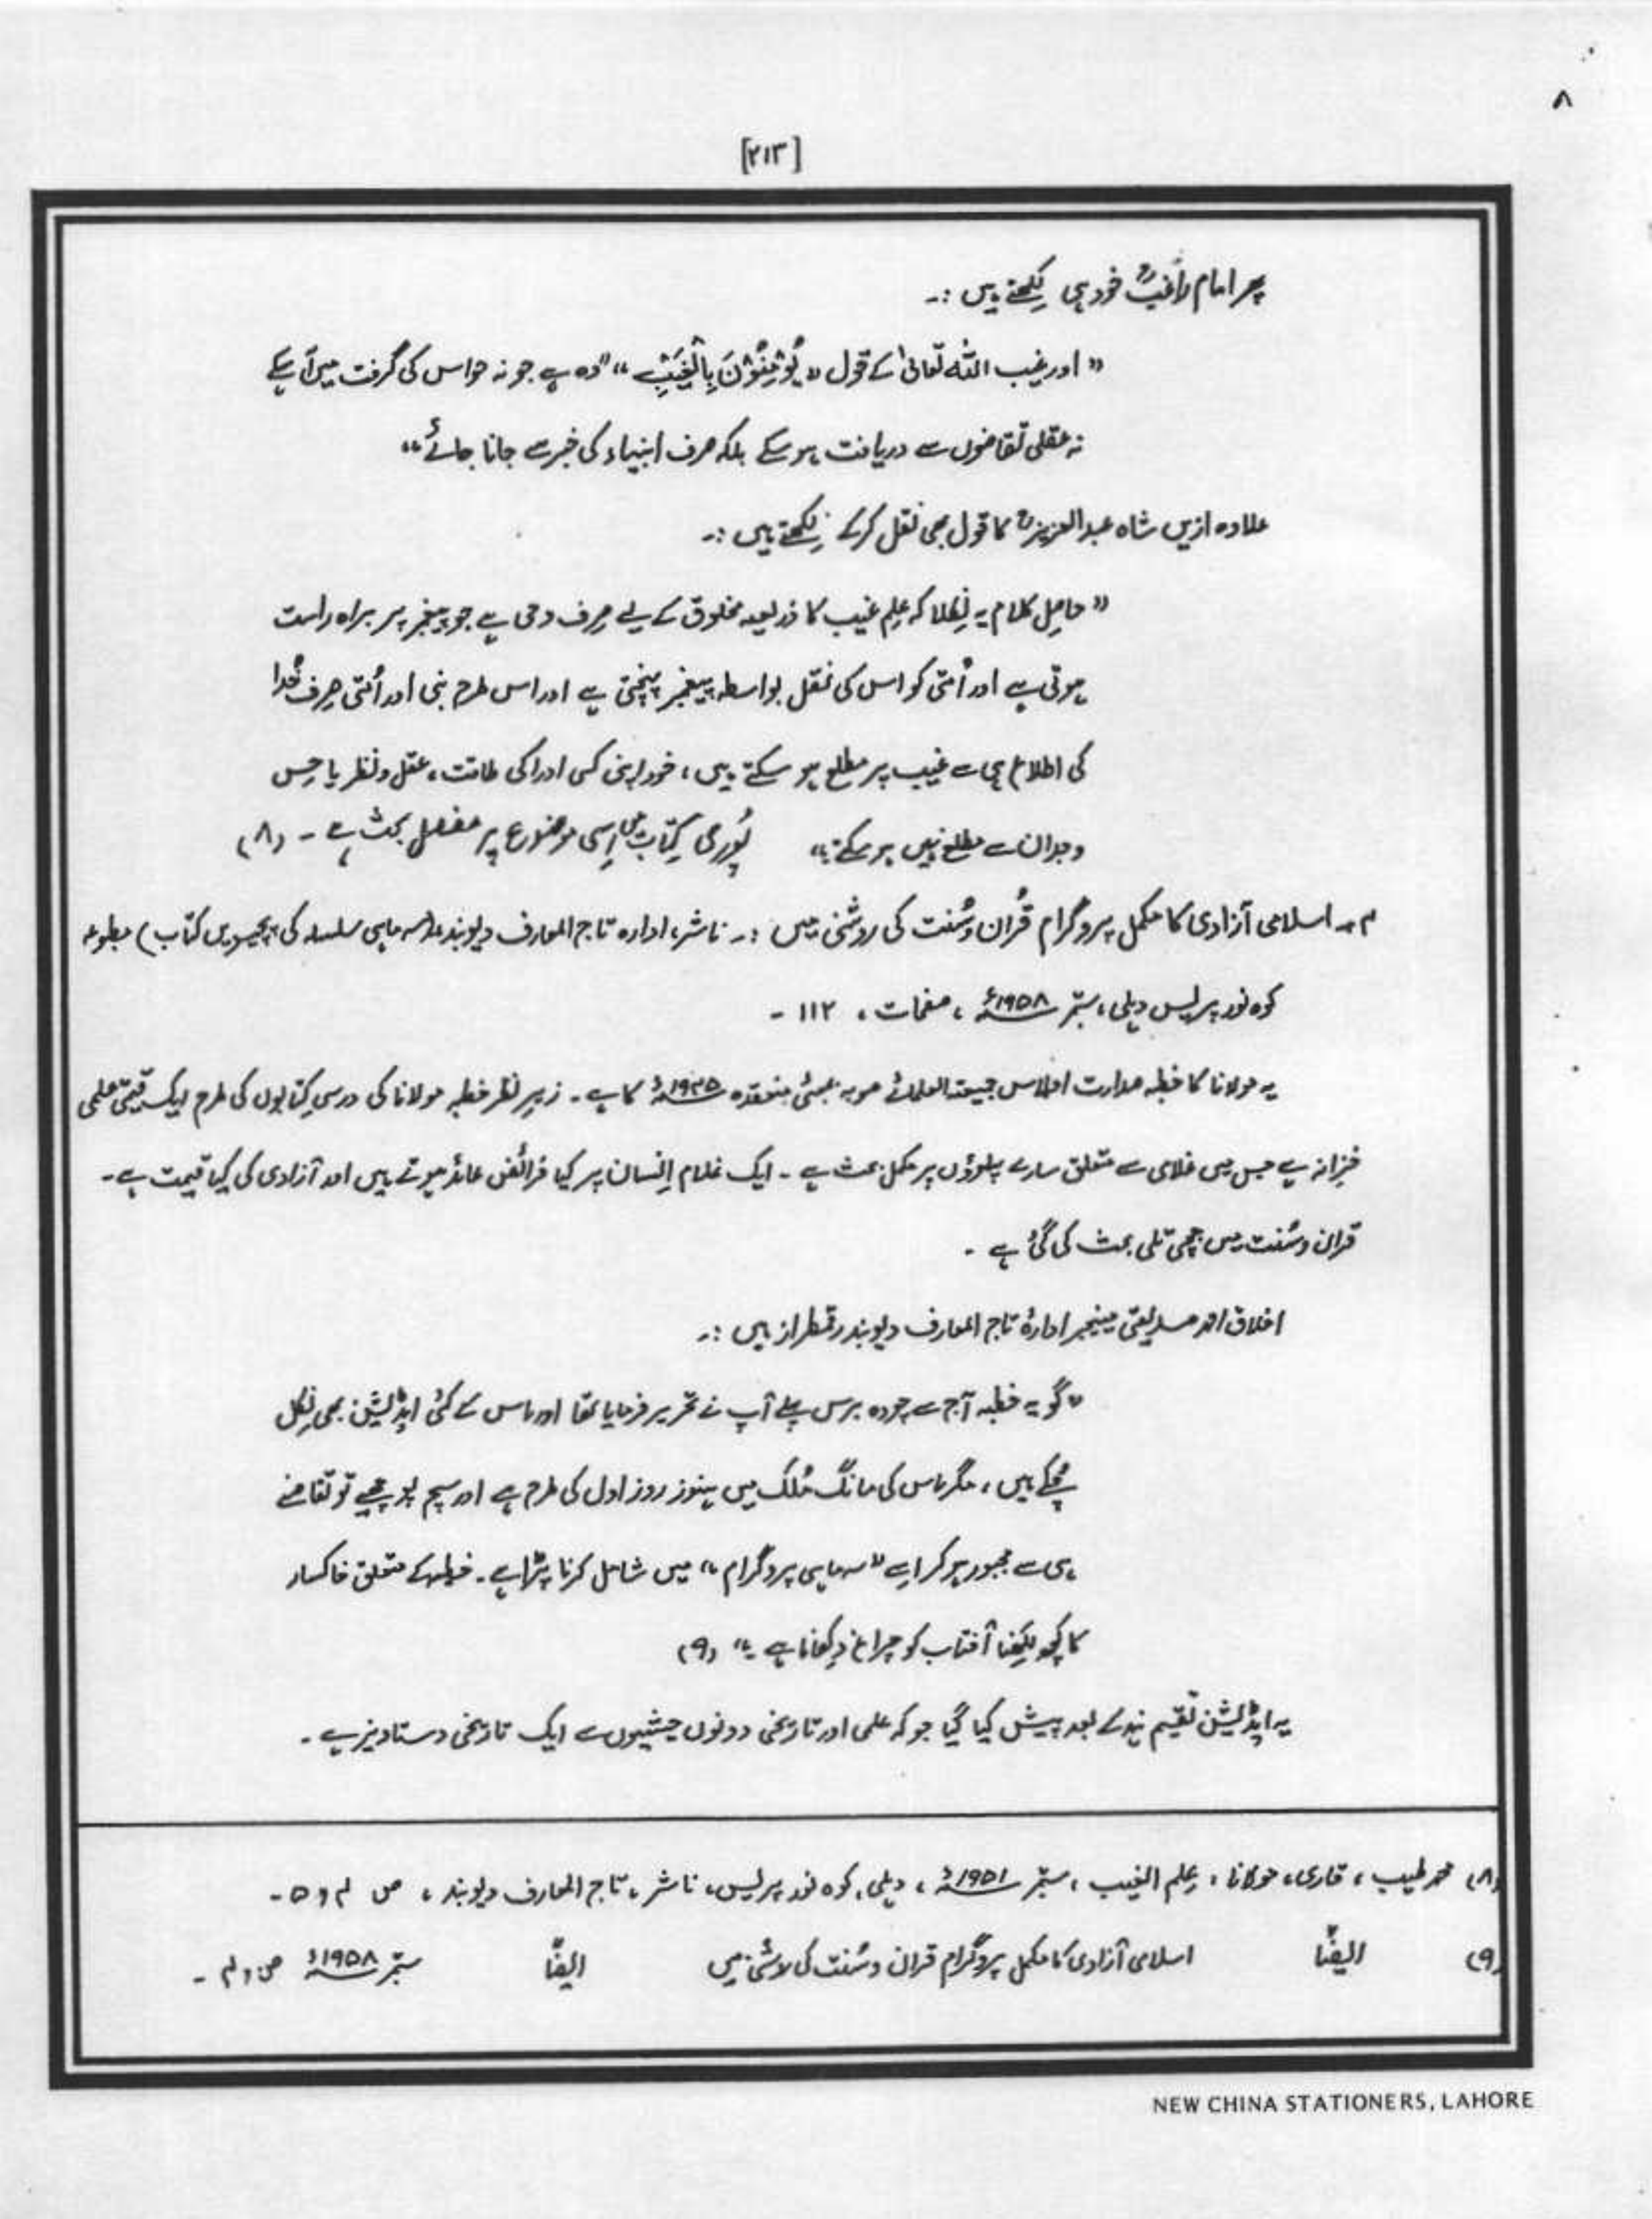 ۸
[۲۱۳]
پھر امام راغبؒ خود ہی لِکھتے ہیں :۔
"اور غیب اللہ تعالیٰ کے قول "یُؤْمِنُوْنَ بِالْغَیْبِ" "وہ ہے جو نہ حواس کی گرفت میں آ سکے
نہ عقلی تقاضوں سے دریافت ہو سکے بلکہ صرف انبیاء کی خبر سے جانا جائے"
علاوہ ازیں شاہ عبدالعزیزؒ کا قول بھی نقل کرکے لِکھتے ہیں :۔
"حاصِل کلام یہ نِکلا کہ عِلمِ غیب کا ذریعہ مخلوق کے لیے صِرف وحی ہے جو پیغمبر پر براہ راست
ہوتی ہے اور اُمتی کو اس کی نقل بواسطہ پیغمبر پہنچتی ہے اور اس طرح نبی اور اُمتی صِرف خُدا
کی اطلاع ہی سے غیب پر مطلع ہو سکتے ہیں، خود اپنی کسی ادراکی طاقت، عقل و نظر یا حِس
و جدان سے مطلع نہیں ہو سکتے۔" پُوری کِتاب میں اِسی موضوع پر مفصل بحث ہے ۔ (۸)
۴۔ اسلامی آزادی کا مکمل پروگرام قُرآن و سُنت کی روشنی میں :۔ ناشر، ادارہ تاج المعارف دیوبند، (سہ ماہی سلسلہ کی پچیسویں کتاب) مطبوعہ
کوہ نور پریس دہلی، ستمبر ۱۹۵۸ء ، صفحات ، ۱۱۲ ۔
یہ مولانا کا خطبہ صدارت اجلاس جمیعتہ العلمائے صوبہ بمبئی منعقدہ ۱۹۴۵ء کا ہے۔ زیرِ نظر خطبہ مولانا کی درسی کِتابوں کی طرح ایک قیمتی علمی
خزانہ ہے جس میں غلامی سے متعلق سارے پہلوؤں پر مکمل بحث ہے ۔ ایک غلام اِنسان پر کیا فرائض عائد ہوتے ہیں اور آزادی کی کیا قیمت ہے۔
قرآن و سُنت میں جچی تلی بحث کی گئی ہے ۔
اخلاق احمد صدیقی مینیجر ادارۂ تاج المعارف دیوبند رقمطراز ہیں :۔
"گو یہ خطبہ آج سے چودہ برس پہلے آپ نے تحریر فرمایا تھا اور اس کے کئی ایڈیشن بھی نِکل
چُکے ہیں، مگر اس کی مانگ مُلک میں ہنوز روز اول کی طرح ہے اور سچ پوچھیے تو تقاضے
ہی سے مجبور ہو کر اسے "سہ ماہی پروگرام" میں شامل کرنا پڑا ہے۔ خطبہ کے متعلق خاکسار
کا کچھ لِکھنا آفتاب کو چراغ دِکھانا ہے ۔" (۹)
یہ ایڈیشن تقسیم ہند کے بعد پیش کیا گیا جو کہ علمی اور تاریخی دونوں حیثیتوں سے ایک تاریخی دستاویز ہے ۔
(۸) محمد طیب ، قاری، مولانا ، عِلم الغیب ، ستمبر ۱۹۵۱ء ، دہلی، کوہ نور پریس، ناشر، تاج المعارف دیوبند ، ص ۴، ۵۔
(۹) ایضًا اسلامی آزادی کا مکمل پروگرام قرآن و سُنت کی روشنی میں ایضًا ستمبر ۱۹۵۸ء ص ۴ ۔
NEW CHINA STATIONERS, LAHORE